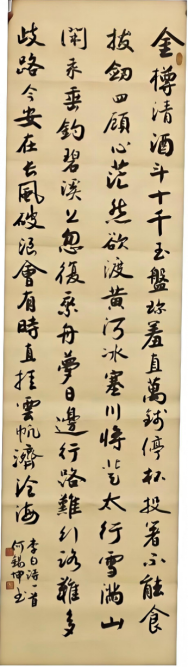 金樽清酒斗十千玉盤珍羞直萬錢停杯投箸不能食
拔劍四顧心茫然欲渡黃河冰塞川將登太行雪滿山
閑來垂釣碧溪上忽復乘舟夢日邊行路難行路難多
歧路今安在長風破浪會有時直挂雲帆濟滄海
李白詩一首
何錫坤書